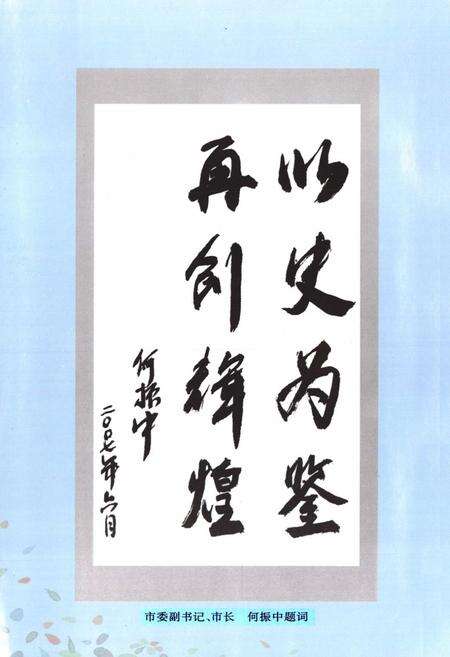 以史为鉴
再创辉煌
何振中
二〇〇七年六月
市委副书记、市长 何振中题词